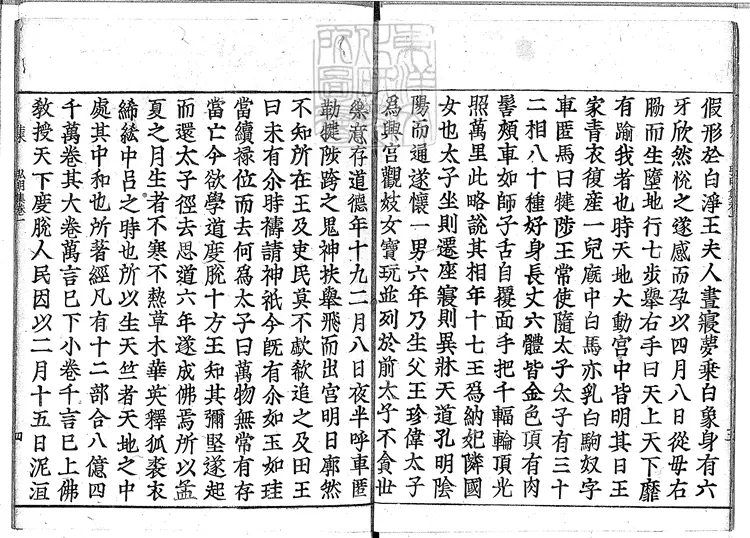 假形於白淨王夫人晝寢夢乘白象身有六
牙欣然悅之遂感而孕以四月八日從母右
脇而生墮地行七步舉右手曰天上天下靡
有踰我者也時天地大動宮中皆明其日王
家青衣復産一兒廄中白馬亦乳白駒奴字
車匿馬曰犍陟王常使隨太子太子有三十
二相八十種好身長丈六體皆金色頂有肉
髻頰車如師子舌自覆面手把千輻輪頂光
照萬里此略說其相年十七王爲納妃隣國
女也太子坐則遷座寢則異牀天道孔明陰
陽而通遂懷一男六年乃生父王珍偉太子
爲興宮觀妓女寶玩並列於前太子不貪世
樂意存道德年十九二月八日夜半呼車匿
勒犍陟跨之鬼神扶舉飛而出宮明日廓然
不知所在王及吏民莫不歔欷追之及田王
曰未有尒時禱請神祇今旣有尒如玉如珪
當續祿位而去何爲太子曰萬物無常有存
當亡今欲學道度脫十方王知其彌堅遂起
而還太子徑去思道六年遂成佛焉所以孟
夏之月生者不寒不熱草木華英釋狐裘衣
絺綌中呂之時也所以生天竺者天地之中
處其中和也所著經凡有十二部合八億四
千萬卷其大卷萬言已下小卷千言已上佛
教授天下度脫人民因以二月十五日泥洹
弘明集卷一
四